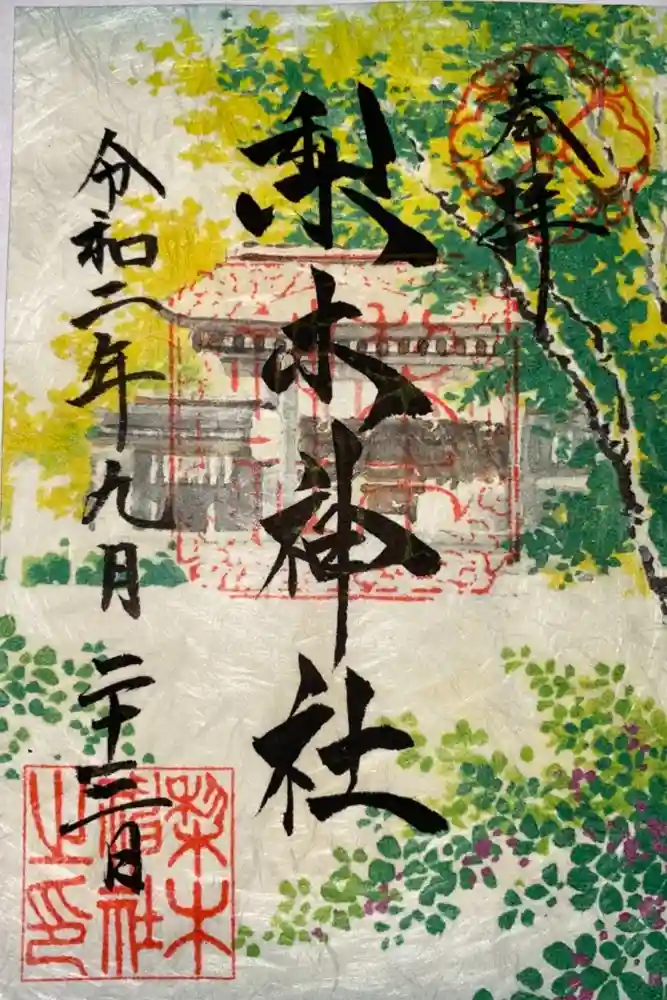 奉拝
梨木神社
令和二年九月二十三日
梨木神社之印